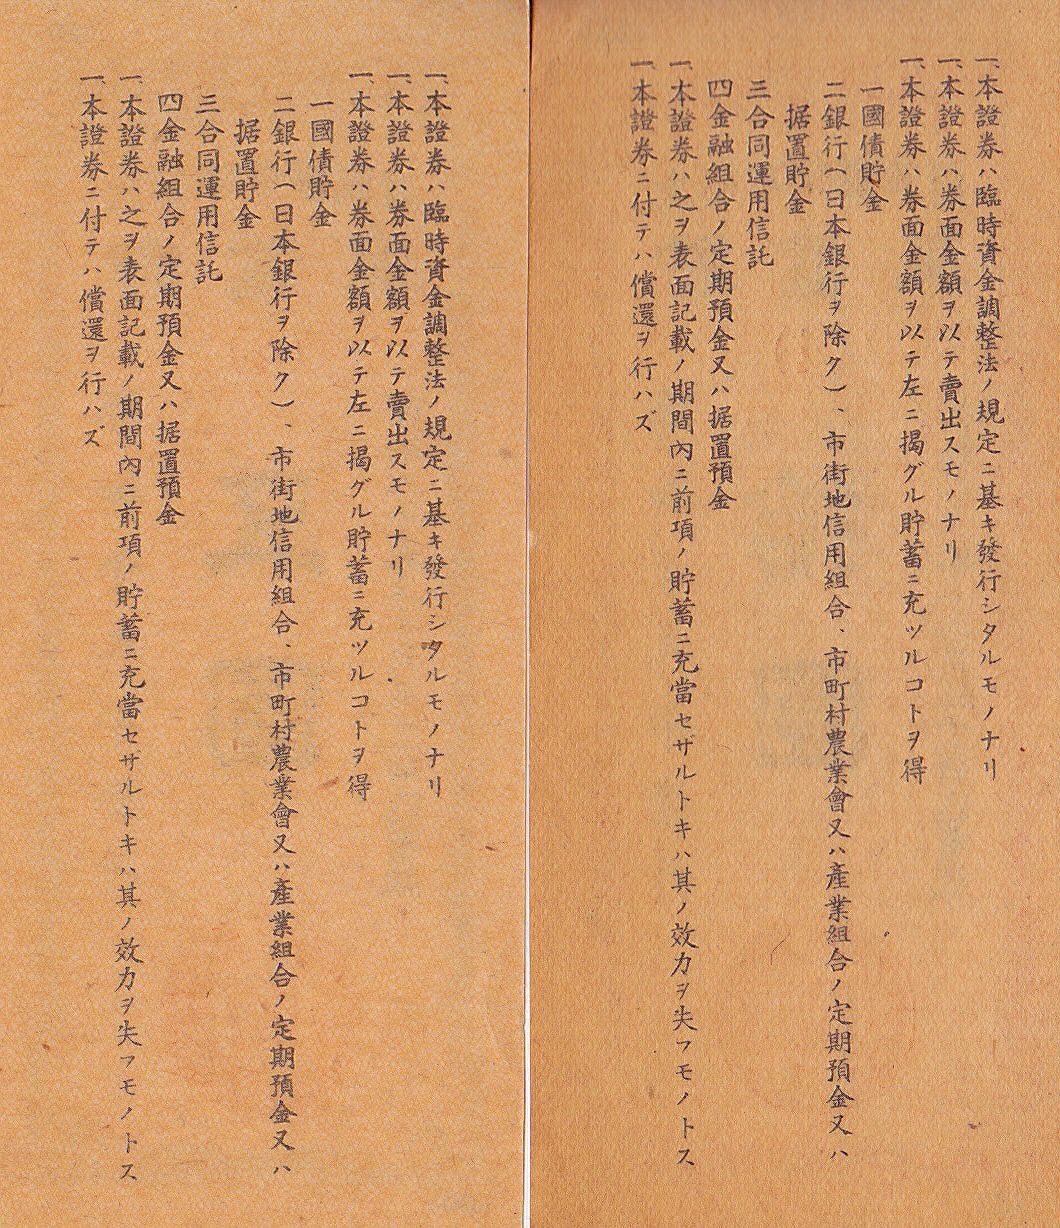 一、本證券ハ臨時資金調整法ノ規定ニ基キ發行シタルモノナリ
一、本證券ハ券面金額ヲ以テ賣出スモノナリ
一、本證券ハ券面金額ヲ以テ左ニ揭グル貯蓄ニ充ツルコトヲ得
一國債貯金
二銀行(日本銀行ヲ除ク)、市街地信用組合、市町村農業會又ハ產業組合ノ定期預金又ハ
据置貯金
三合同運用信託
四金融組合ノ定期預金又ハ据置預金
一、本證券ハ之ヲ表面記載ノ期間內ニ前項ノ貯蓄ニ充當セザルトキハ其ノ效力ヲ失フモノトス
一、本證券ニ付テハ償還ヲ行ハズ
一、本證券ハ臨時資金調整法ノ規定ニ基キ發行シタルモノナリ
一、本證券ハ券面金額ヲ以テ賣出スモノナリ
一、本證券ハ券面金額ヲ以テ左ニ揭グル貯蓄ニ充ツルコトヲ得
一國債貯金
二銀行(日本銀行ヲ除ク)、市街地信用組合、市町村農業會又ハ產業組合ノ定期預金又ハ
据置貯金
三合同運用信託
四金融組合ノ定期預金又ハ据置預金
一、本證券ハ之ヲ表面記載ノ期間內ニ前項ノ貯蓄ニ充當セサルトキハ其ノ效力ヲ失フモノトス
一、本證券ニ付テハ償還ヲ行ハズ